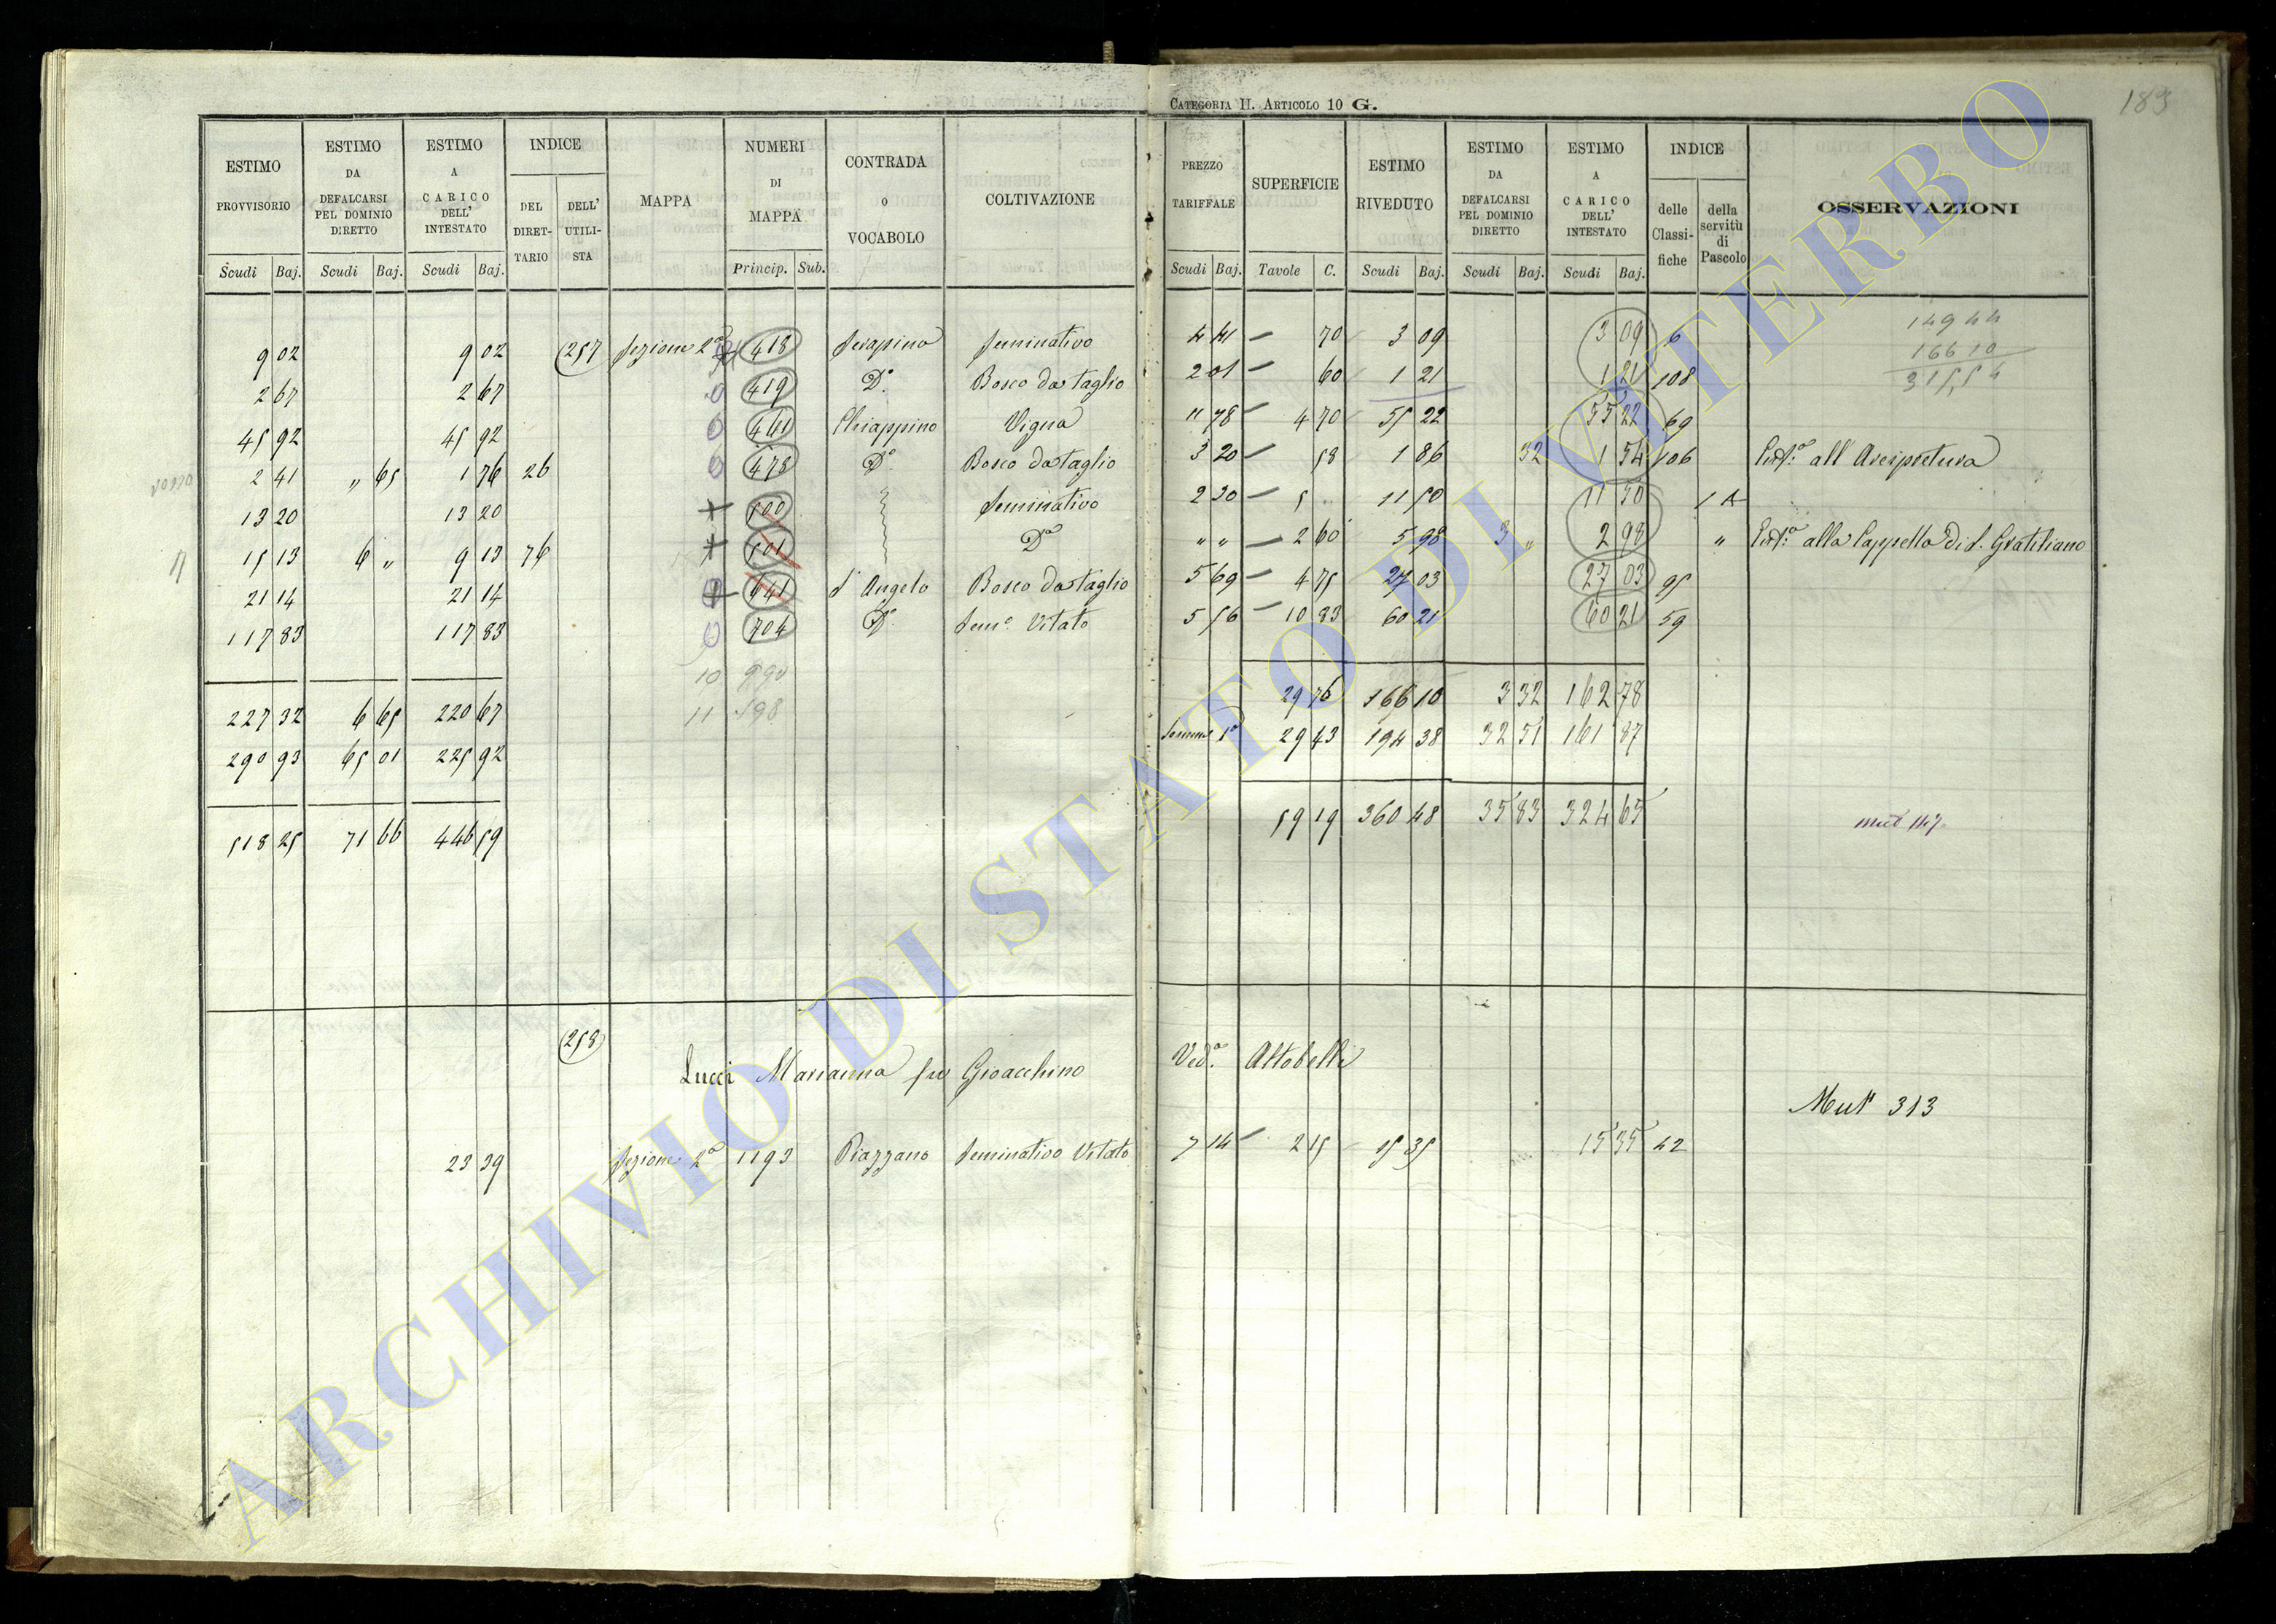 CATEGORIA II. ARTICOLO 10 G.
183
ESTIMO PROVVISORIO Scudi Baj.
ESTIMO DA DEFALCARSI PEL DOMINIO DIRETTO Scudi Baj.
ESTIMO A CARICO DELL' INTESTATO Scudi Baj.
INDICE DEL DIRETTARIO DELL' UTILISTA
MAPPA
NUMERI DI MAPPA Princip. Sub.
CONTRADA O VOCABOLO
COLTIVAZIONE
PREZZO TARIFFALE Scudi Baj.
SUPERFICIE Tavole C.
ESTIMO RIVEDUTO Scudi Baj.
ESTIMO DA DEFALCARSI PEL DOMINIO DIRETTO Scudi Baj.
ESTIMO A CARICO DELL' INTESTATO Scudi Baj.
INDICE delle Classifiche della servitù di Pascolo
OSSERVAZIONI
149 44
166 10
315,54
9 02 9 02 257 Sezione 2a 418 Serapino Seminativo 4 41 — 70 3 09 3 09 6
2 67 2 67 419 Do. Bosco da taglio 2 01 — 60 1 21 1 21 108
45 92 45 92 461 Chiappino Vigna 11 78 — 4 70 55 22 55 22 69
2 41 " 65 1 76 26 478 Do. Bosco da taglio 3 20 — 58 1 86 32 1 54 106 all'Arcipretura
13 20 13 20 500 Seminativo 2 30 — 5 .. 11 50 11 50 1 A
15 13 6 " 9 13 76 501 Do " " — 2 60 5 98 3 " 2 98 " alla Cappella di S. Gratiliano
21 14 21 14 641 S. Angelo Bosco da taglio 5 69 — 4 75 27 03 27 03 95
117 83 117 83 704 Do. Semo. Vitato 5 56 — 10 83 60 21 60 21 59
10
11 598
227 32 6 65 220 67 29 76 166 10 3 32 162 78
290 93 65 01 225 92 Somma 1a 29 43 194 38 32 51 161 87
518 25 71 66 446 59 59 19 360 48 35 83 324 65
258
Lucci Marianna fu Gioacchino Veda. Altobelli
Mut 313
23 39 Sezione 2a 1193 Piazzano Seminativo Vitato 7 14 — 2 15 15 35 15 35 42
ARCHIVIO DI STATO DI VITERBO